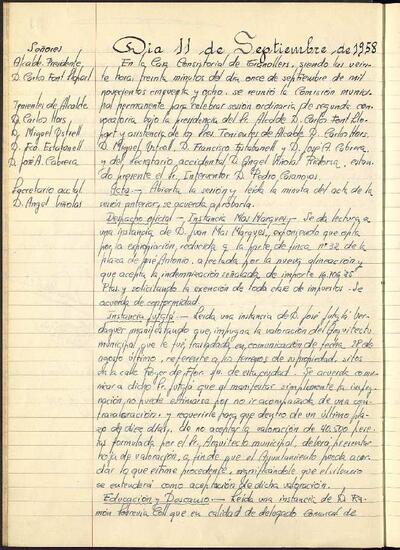 Dia 11 de Septiembre de 1958
Señores
Alcalde-Presidente,
D. Carlos Font Llopart
Tenientes de Alcalde
D. Carlos Hors
D. Miguel Ustrell
D. Fco Estabanell
D. José A. Cabrera
Secretario acctal
D. Angel Viñolas
En la Casa Consistorial de Granollers, siendo las vein-
te horas treinta minutos del dia once de septiembre de mil
novecientos cincuenta y ocho, se reunió la Comisión munici-
pal permanente para celebrar sesión ordinaria de segunda con-
vocatoria bajo la presidencia del Sr. Alcalde D. Carlos Font Llo-
part y asistencia de los Sres Tenientes de Alcalde D. Carlos Hors,
D. Miguel Ustrell, D. Francisco Estabanell y D. José A. Cabrera,
y del Secretario accidental D. Angel Viñolas, estan-
do presente el Sr. Interventor D. Pedro
Acta.- Abierta la sesión y leida la minuta del acta de la
sesión anterior, se acuerda aprobarla.
Despacho oficial.- Instancia Mas Margues.- Se da lectura a
una instancia de D. Juan Mas Margues, exponiendo que opta
por la expropiación, reducida a la parte de finca nº 32 de la
plaza de José Antonio, afectada por la nueva alineación y
que acepta la indemnización señalada de importe
Ptas y solicitando la exención de toda clase de impuestos. Se
acuerda de conformidad.
Instancia Jutglá.- Leida una instancia de D. José Jutglá Ver-
daguer manifestando que, impugna la valoración del Arquitecto
municipal que le fué trasladada en comunicación de fecha 28 de
agosto último, referente a los terrenos de su propiedad, sitos
en la calle Roger de Flor de esta ciudad. Se acuerda comu-
nicar a dicho Sr. Jutglá que al manifestar simplemente la impug-
nación, no puede estimarse por no ir acompañada de una con-
travaloración, y requerirle para que dentro de un último pla-
zo de diez dias, de no aceptar la valoración de 40.500 pese-
tas formulada por el Sr. Arquitecto municipal, deberá presentar
hoja de valoración, a fin de que el Ayuntamiento pueda acor-
dar lo que estime procedente, significándole que el silencio
se entenderá como aceptación de dicha valoración.
Educación y Descanso.- Leida una instancia de D. Ra-
món Coll que en calidad de delegado comarcal de